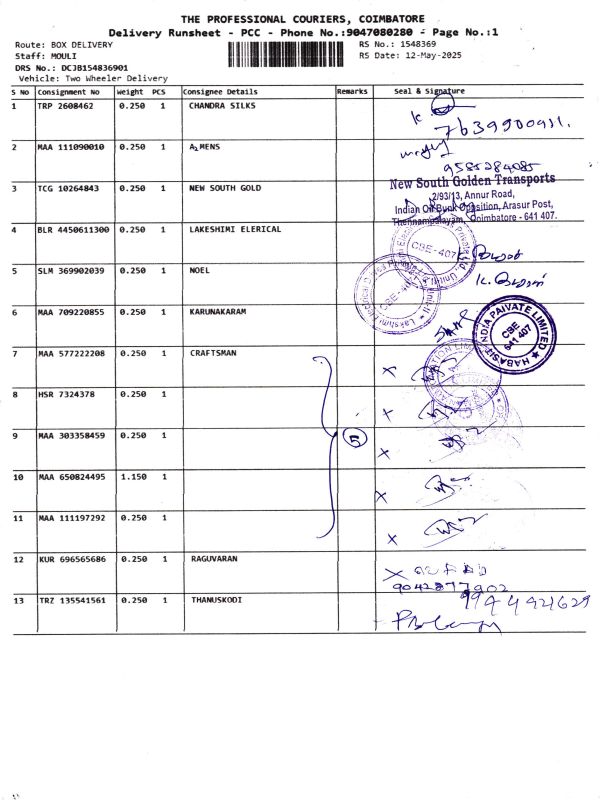 THE PROFESSIONAL COURIERS, COIMBATORE
Delivery Runsheet - PCC - Phone No.:9047080280 - Page No.:1
Route: BOX DELIVERY
RS No.: 1548369
Staff: MOULI
RS Date: 12-May-2025
DRS No.: DCJB154836901
Vehicle: Two Wheeler Delivery
S No Consignment No Weight PCS Consignee Details Remarks Seal & Signature
1 TRP 2608462 0.250 1 CHANDRA SILKS
7639900911.
2 MAA 111090010 0.250 1 A2MENS
9585284085
3 TCG 10264843 0.250 1 NEW SOUTH GOLD
New South Golden Transports
2/93/13, Annur Road,
Indian Oil Bunk Opposition, Arasur Post,
Thennampalayam, Coimbatore - 641 407.
4 BLR 4450611300 0.250 1 LAKESHIMI ELERICAL
CBE-407
5 SLM 369902039 0.250 1 NOEL
6 MAA 709220855 0.250 1 KARUNAKARAM
HABASIT INDIA PAIVATE LIMITED
CBE
641 407
7 MAA 577222208 0.250 1 CRAFTSMAN
X
8 HSR 7324378 0.250 1
X
9 MAA 303358459 0.250 1 5
X
10 MAA 650824495 1.150 1
X
11 MAA 111197292 0.250 1
X
12 KUR 696565686 0.250 1 RAGUVARAN
X
9042877902
13 TRZ 135541561 0.250 1 THANUSKODI
9944921629